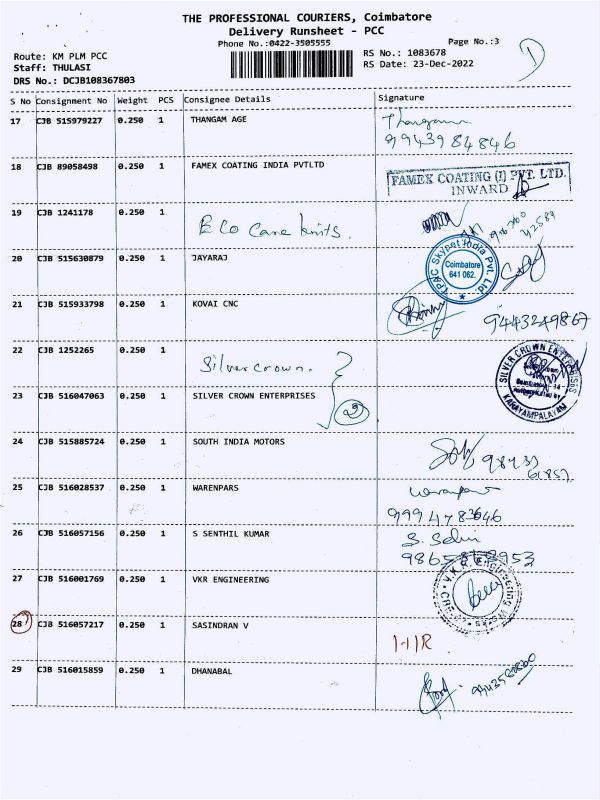 THE PROFESSIONAL COURIERS, Coimbatore
Delivery Runsheet - PCC
Phone No.:0422-3505555
Page No.:3
Route: KM PLM PCC
Staff: THULASI
DRS No.: DCJB108367803
RS No.: 1083678
RS Date: 23-Dec-2022
S No Consignment No Weight PCS Consignee Details Signature
17 CJB 515979227 0.250 1 THANGAM AGE
9943984846
18 CJB 89058498 0.250 1 FAMEX COATING INDIA PVTLTD
FAMEX COATING (I) PVT. LTD.
INWARD
19 CJB 1241178 0.250 1
Eco Care knits.
20 CJB 515630879 0.250 1 JAYARAJ
Coimbatore
641 062.
21 CJB 515933798 0.250 1 KOVAI CNC
9443249867
22 CJB 1252265 0.250 1
Silver crown.
SILVER CROWN ENTERPRISES
KARAYAMPALAYAM
23 CJB 516047063 0.250 1 SILVER CROWN ENTERPRISES
2
24 CJB 515885724 0.250 1 SOUTH INDIA MOTORS
25 CJB 516028537 0.250 1 WARENPARS
26 CJB 516057156 0.250 1 S SENTHIL KUMAR
27 CJB 516001769 0.250 1 VKR ENGINEERING
28 CJB 516057217 0.250 1 SASINDRAN V
29 CJB 516015859 0.250 1 DHANABAL